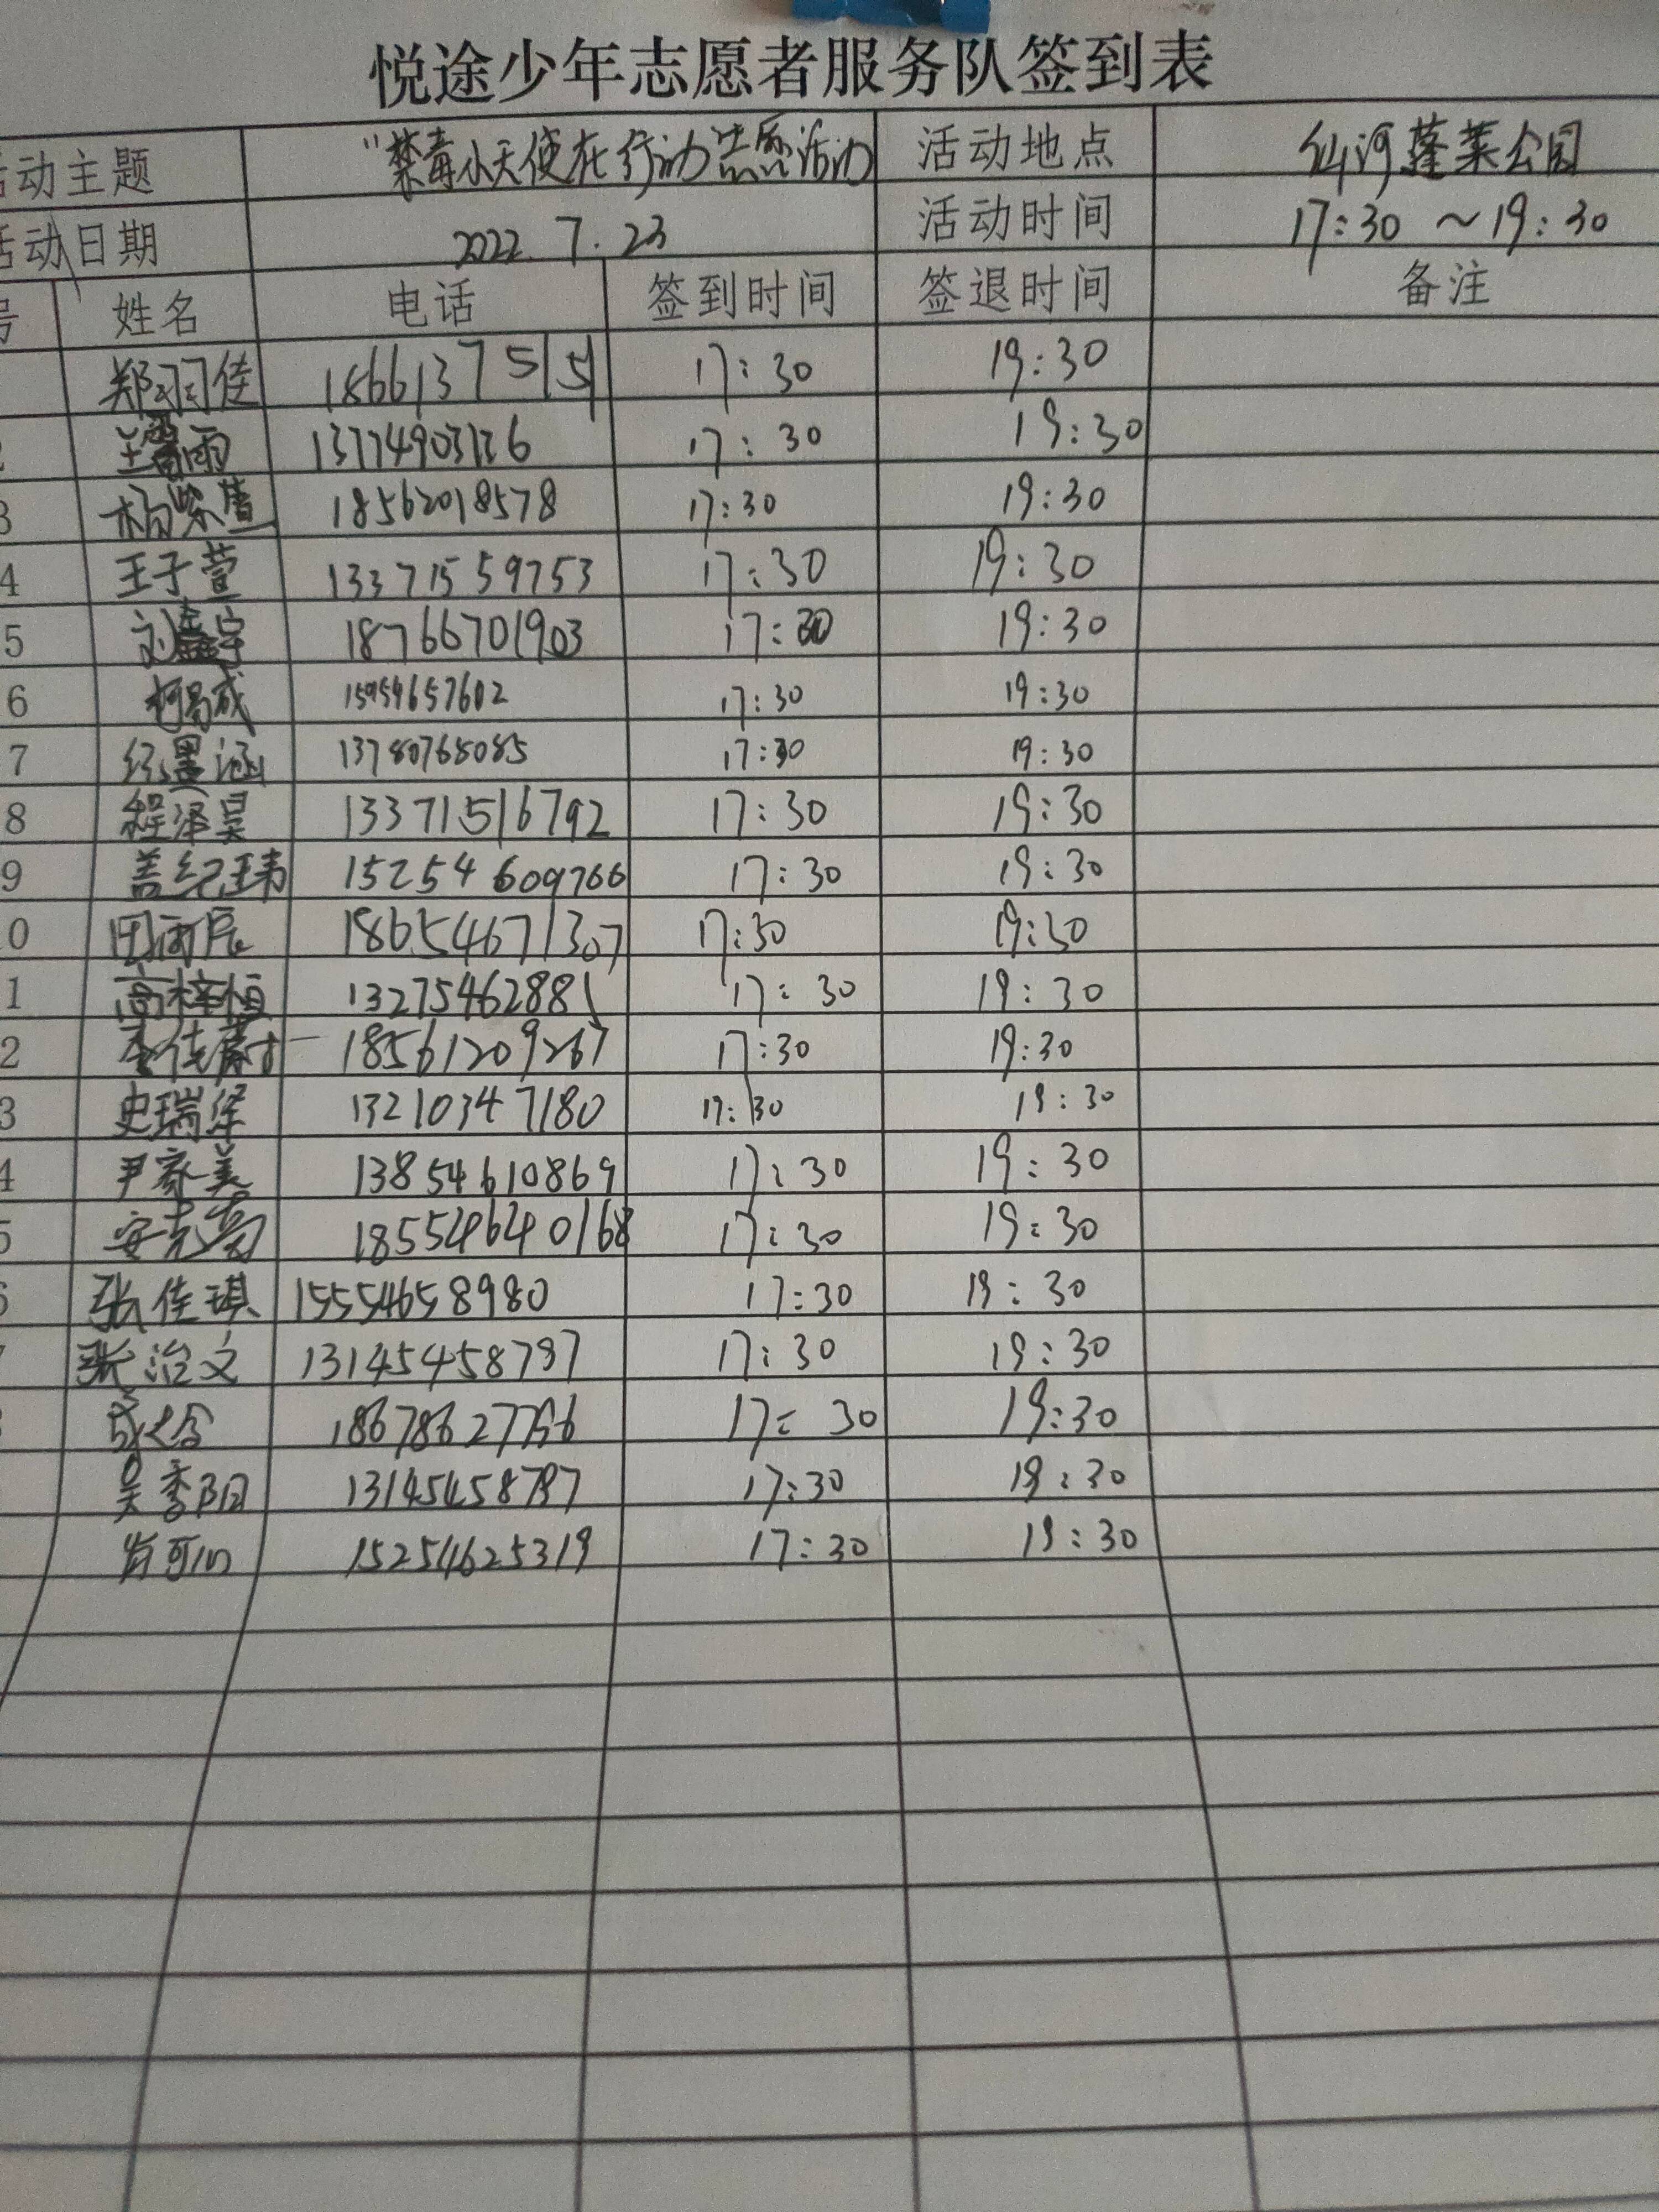 悦途少年志愿者服务队签到表
活动主题 "禁毒小天使在行动志愿活动 活动地点 仙河蓬莱公园
活动日期 2022.7.23 活动时间 17:30 ~19:30
号 姓名 电话 签到时间 签退时间 备注
郑羽佳 18661375151 17:30 19:30
2 王 雨 13774903736 17:30 19:30
3 杨紫萱 18562018578 17:30 19:30
4 王子萱 13371559753 17:30 19:30
5 刘鑫宇 18766701903 17:30 19:30
6 柯易成 15954657602 17:30 19:30
7 纪墨涵 13780768085 17:30 19:30
8 程泽昊 13371516792 17:30 19:30
9 盖纪玮 15254609766 17:30 19:30
0 18654671307 17:30 19:30
1 高梓恒 13275462881 17:30 19:30
2 李佳蔚 18561209267 17:30 19:30
3 史瑞 13210347180 17:30 19:30
4 尹家美 13854610869 17:30 19:30
5 安 18554640168 17:30 19:30
6 张佳琪 15554658980 17:30 19:30
张治文 13145458797 17:30 19:30
17:30 19:30
吴季阳 13145458797 17:30 19:30
肖可心 15254625319 17:30 19:30